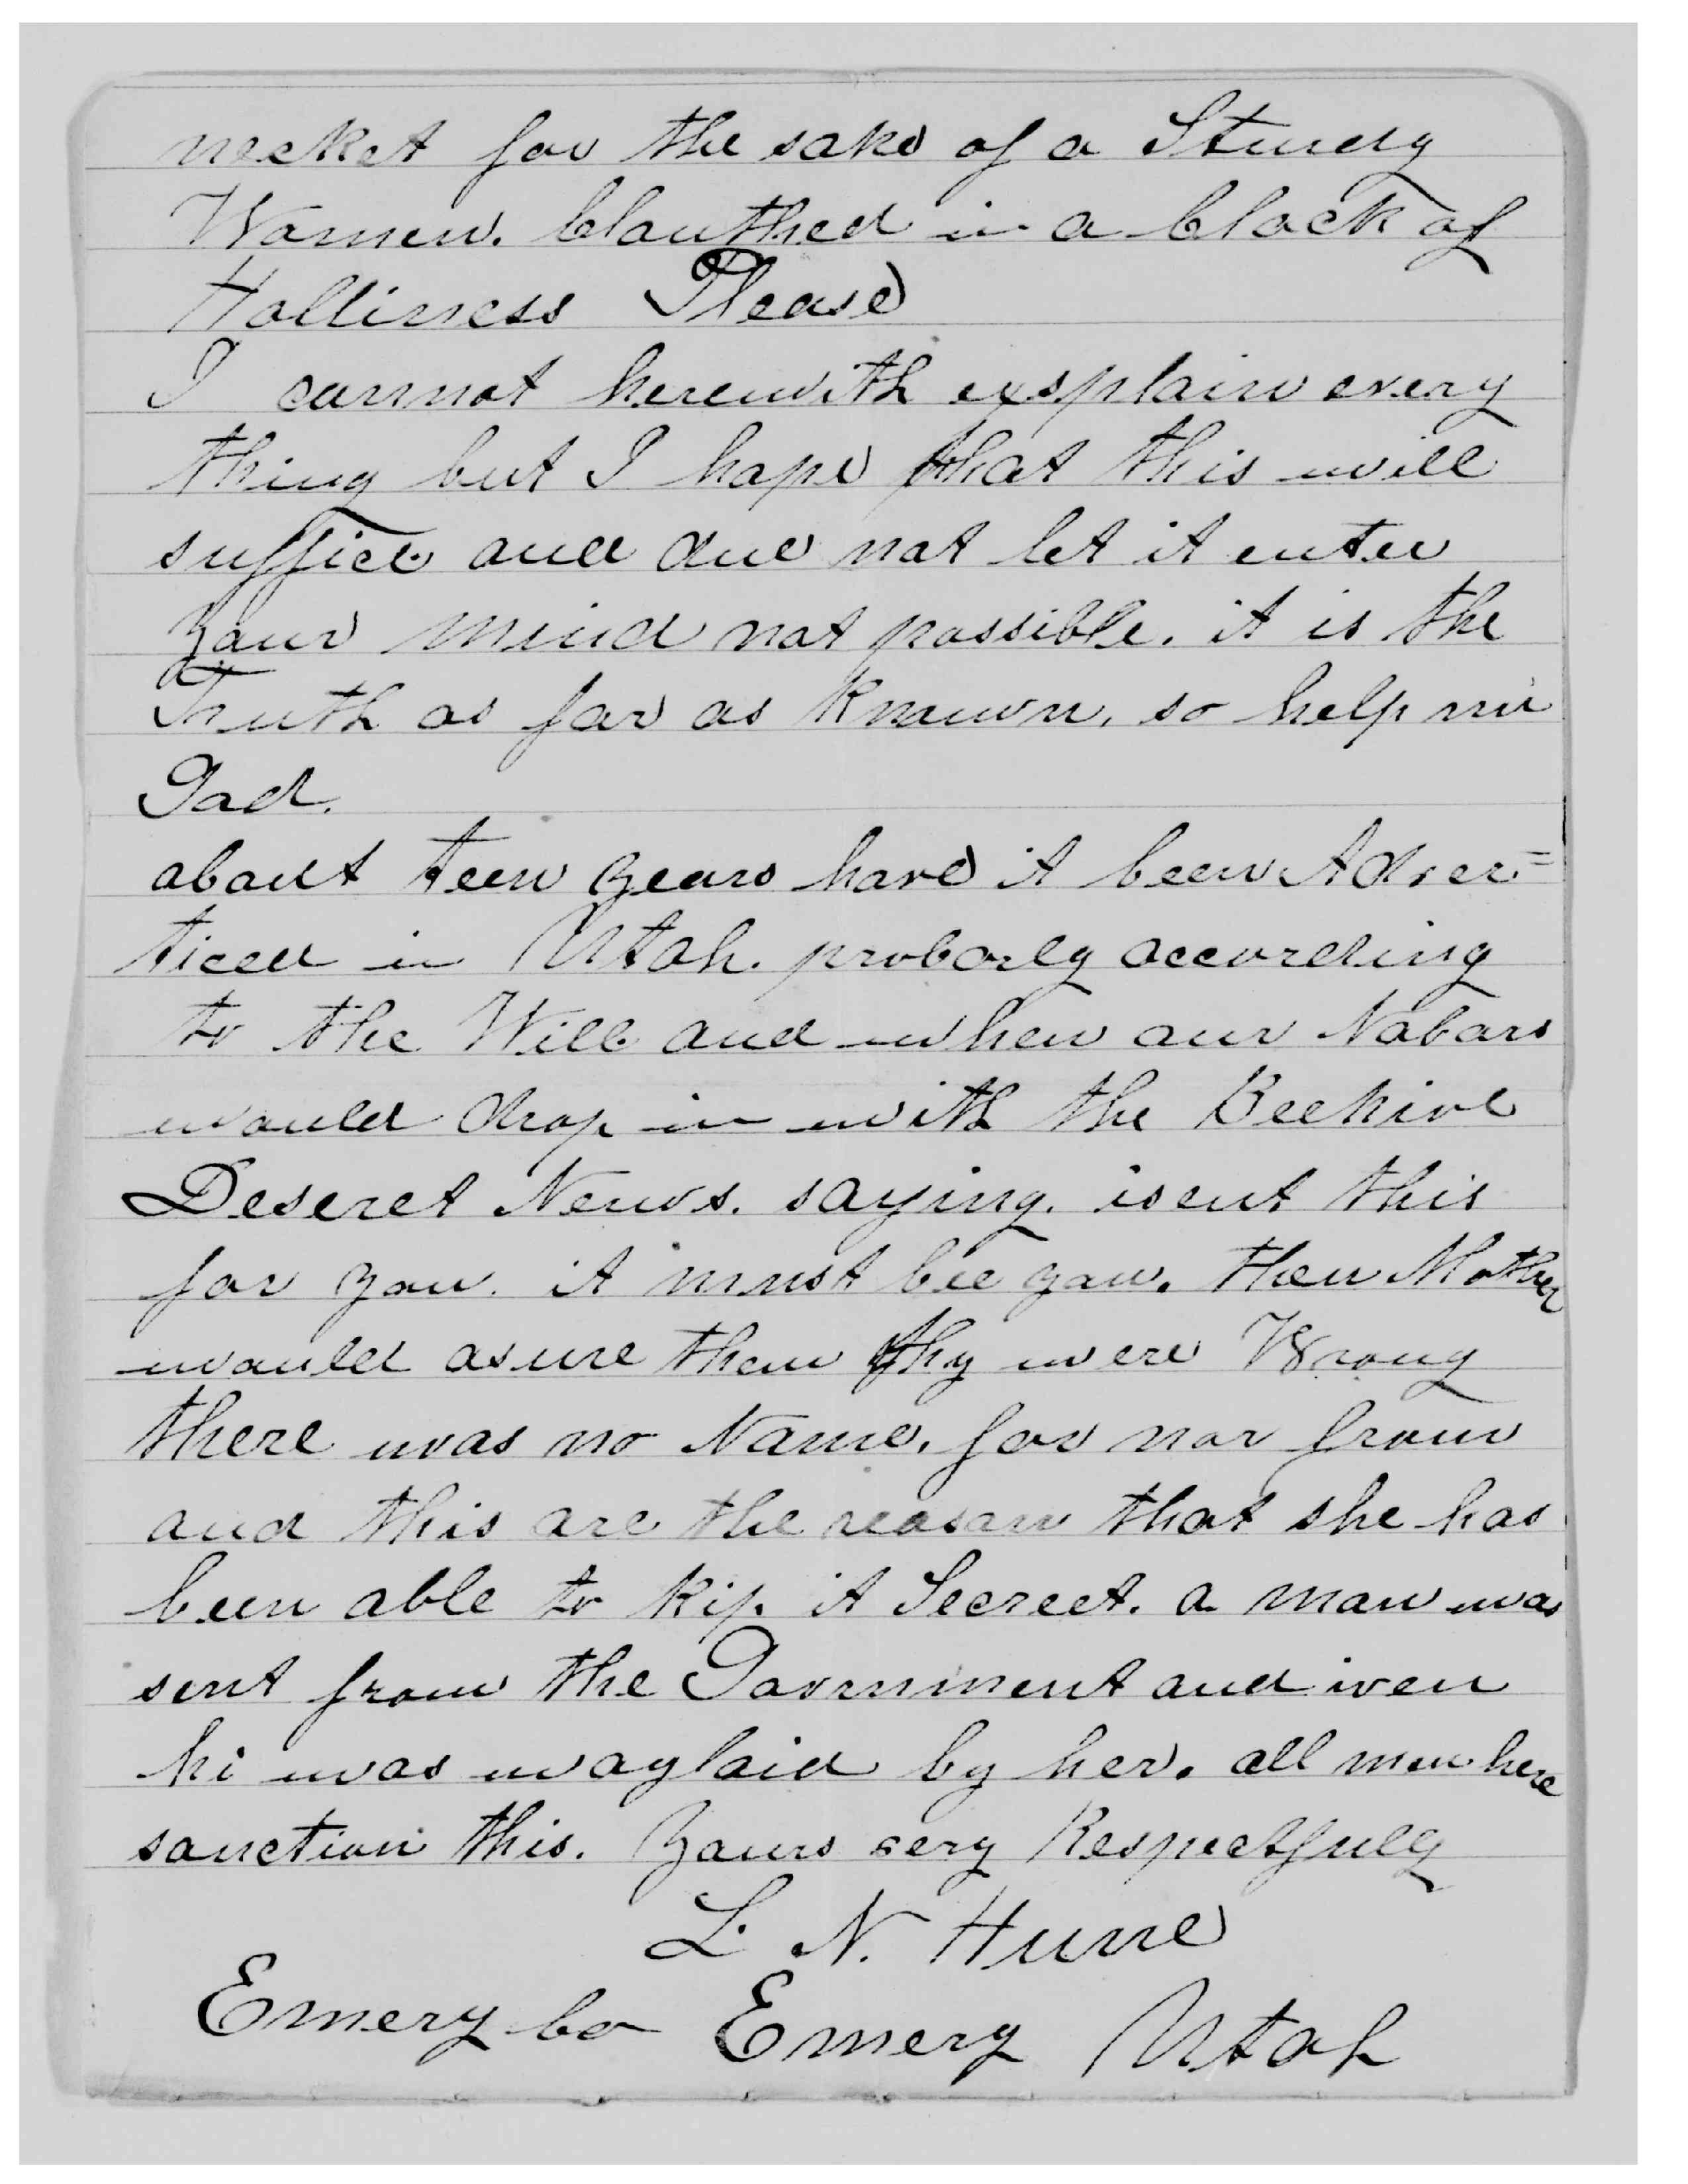 necket for the sake of a Sturdy
Women. Clauthed in a Clock of
Holliness Please
I cannot herewith exsplain every
thing but I hope that this will
suffice and due not let it enter
your mind not possible. it is the
Truth as far as Known, so help mi
God.
about teen years have it been Adver=
ticed in Utah. probarly according
to the Will and when our Nabors
would drop in with the Beehive
Deseret News. saying. isent this
for you. it must bee you. then Mother
would asure them thy were Wrong
there was no Name. for nor from
and this are the reason that she has
been able to kip it Secreet. a man was
sent from the Government and iven
hi was waylaid by her. all men here
sanction this. Yours very Respectfully
L. N. Hune
Emery Co Emery Utah